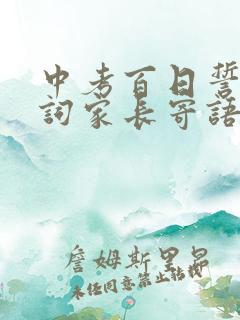 中考百日誓
詞家长寄語
詹姆斯里昂
未经同意禁止转载